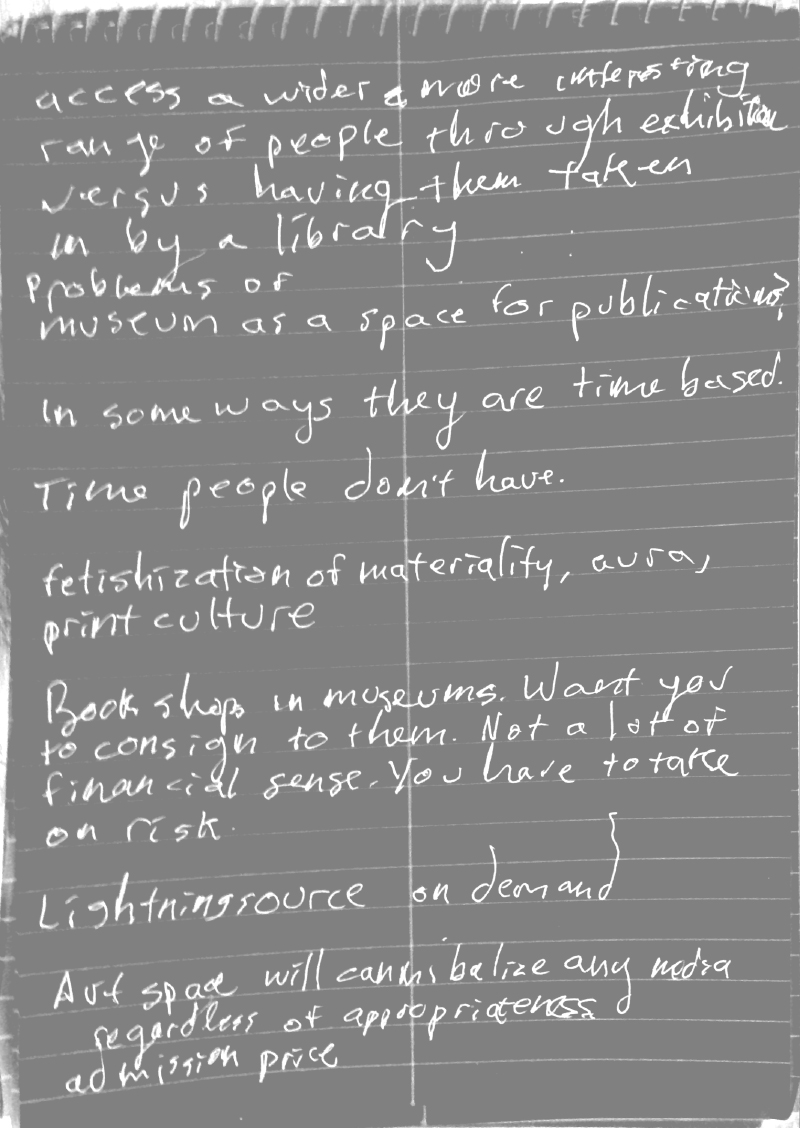 access a wider & more interesting
range of people through exhibition
versus having them taken
in by a library
Problems of
museum as a space for publications?
In some ways they are time based.
Time people don't have.
fetishization of materiality, aura,
print culture
Book shops in museums. Want you
to consign to them. Not a lot of
financial sense. You have to take
on risk.
Lightningsource on demand
Art space will cannibalize any media
regardless of appropriateness
admission price